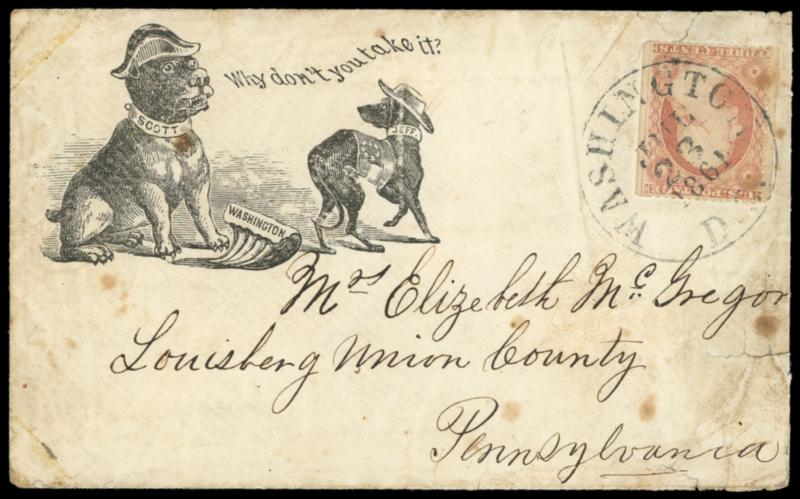 Why don't you take it?
SCOTT
JEFF.
WASHINGTON
WASHINGTON D
JUL
3
1861
THREE CENTS
U.S. POSTAGE
Mrs Elizebeth Mc. Gregor
Louisberg Union County
Pennsylvania